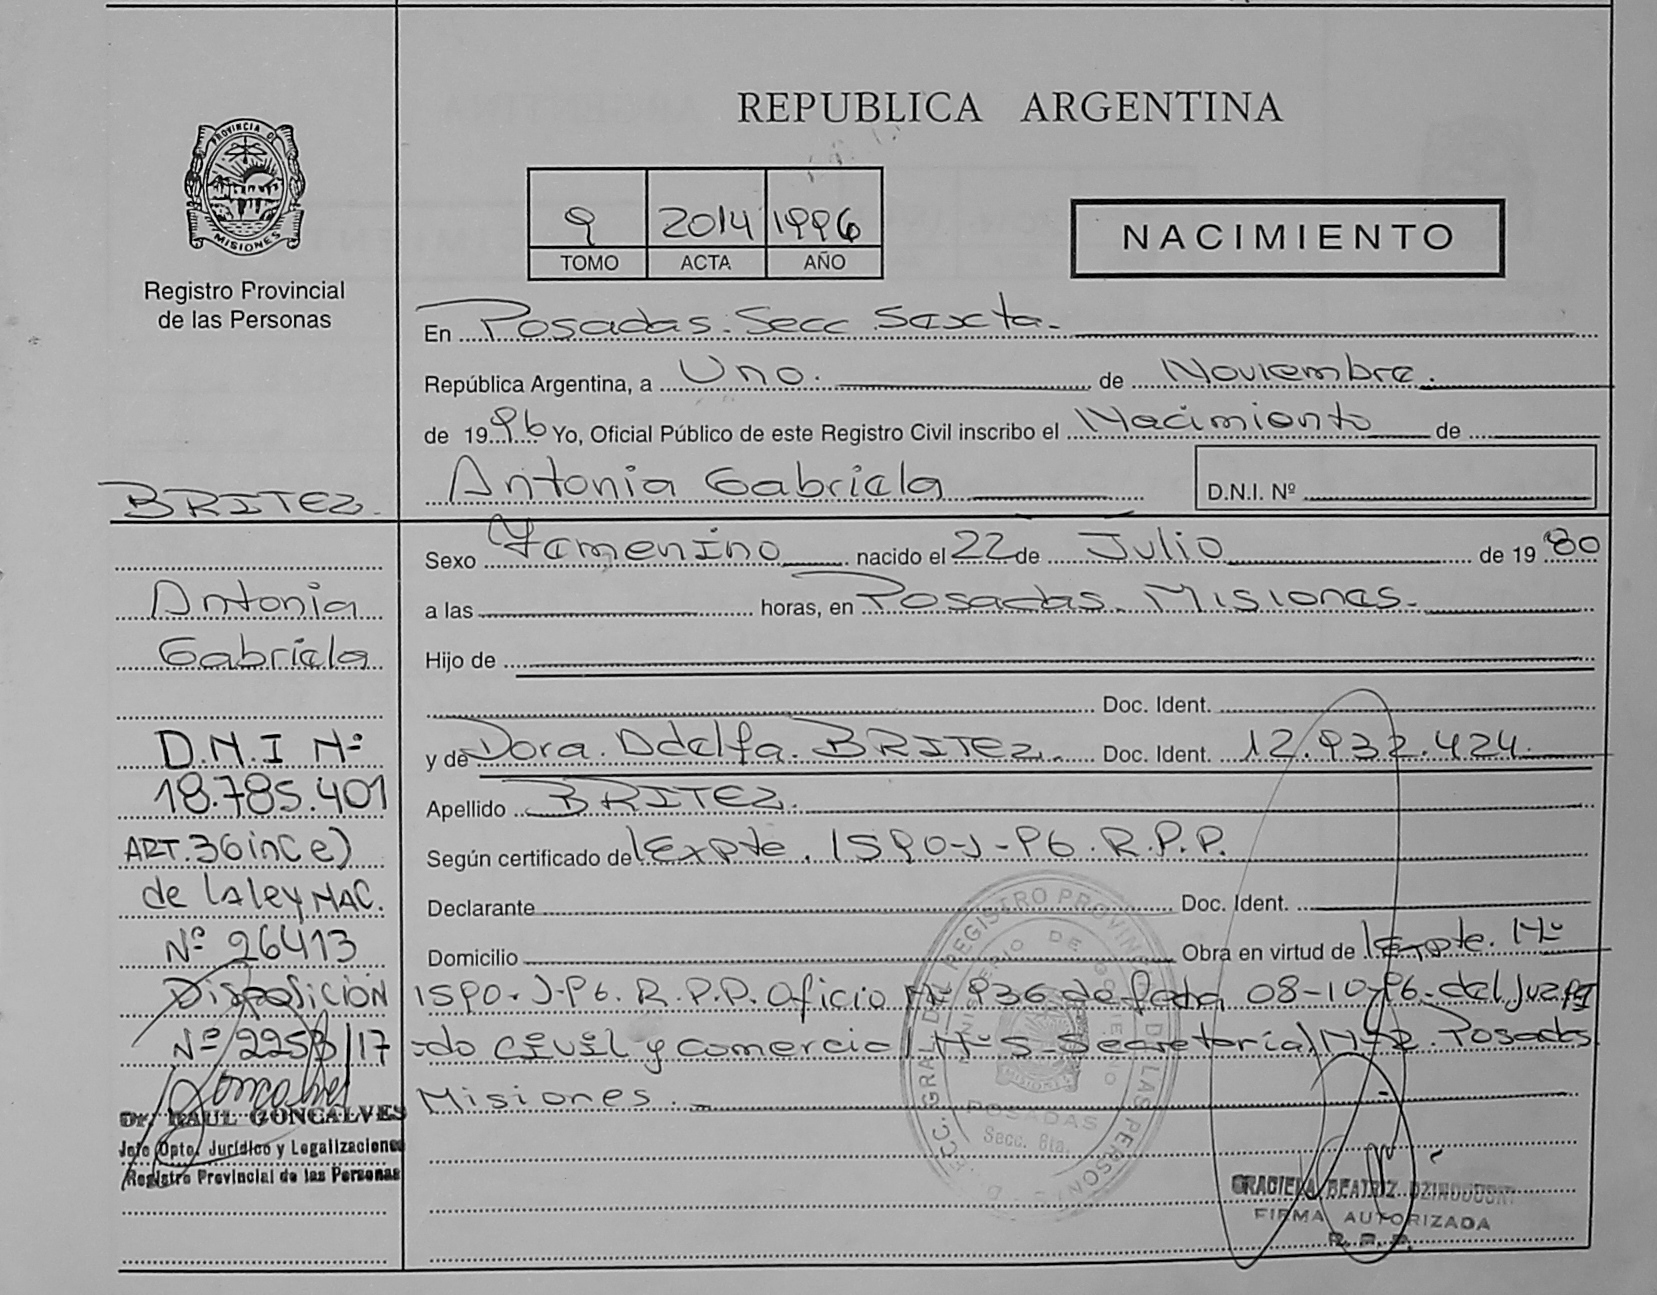 REPUBLICA ARGENTINA
PROVINCIA DE
MISIONES
Registro Provincial
de las Personas
9 2014 1996
TOMO ACTA AÑO
NACIMIENTO
En Posadas. Secc Sexta.
República Argentina, a Uno. de Noviembre.
de 1996 Yo, Oficial Público de este Registro Civil inscribo el Nacimiento de
Antonia Gabriela D.N.I. Nº
Sexo Femenino nacido el 22 de Julio de 1980
a las horas, en Posadas. Misiones.
Hijo de
Doc. Ident.
y de Dora. Delfa. BRITEZ. Doc. Ident. 12.932.424.
Apellido BRITEZ.
Según certificado de Expte. 1590-J-96. R.P.P.
Declarante Doc. Ident.
Domicilio Obra en virtud de Expte. Nº
1590-J-96. R.P.P. Oficio Nº 936 de fecha 08-10-96. del Juzga
do Civil y Comercial Nº 5 - Secretaría Nº 2. Posadas
Misiones.
POSADAS
Secc. 6ta.
GRACIELA BEATRIZ
FIRMA AUTORIZADA
R.P.P.
BRITEZ.
Antonia
Gabriela
D.N.I Nº
18.785.401
ART.36 inc e)
de la ley NAC.
Nº 26413
Disposición
Nº 2253/17
Dr. RAUL GONCALVES
Jefe Dpto. Jurídico y Legalizaciones
Registro Provincial de las Personas